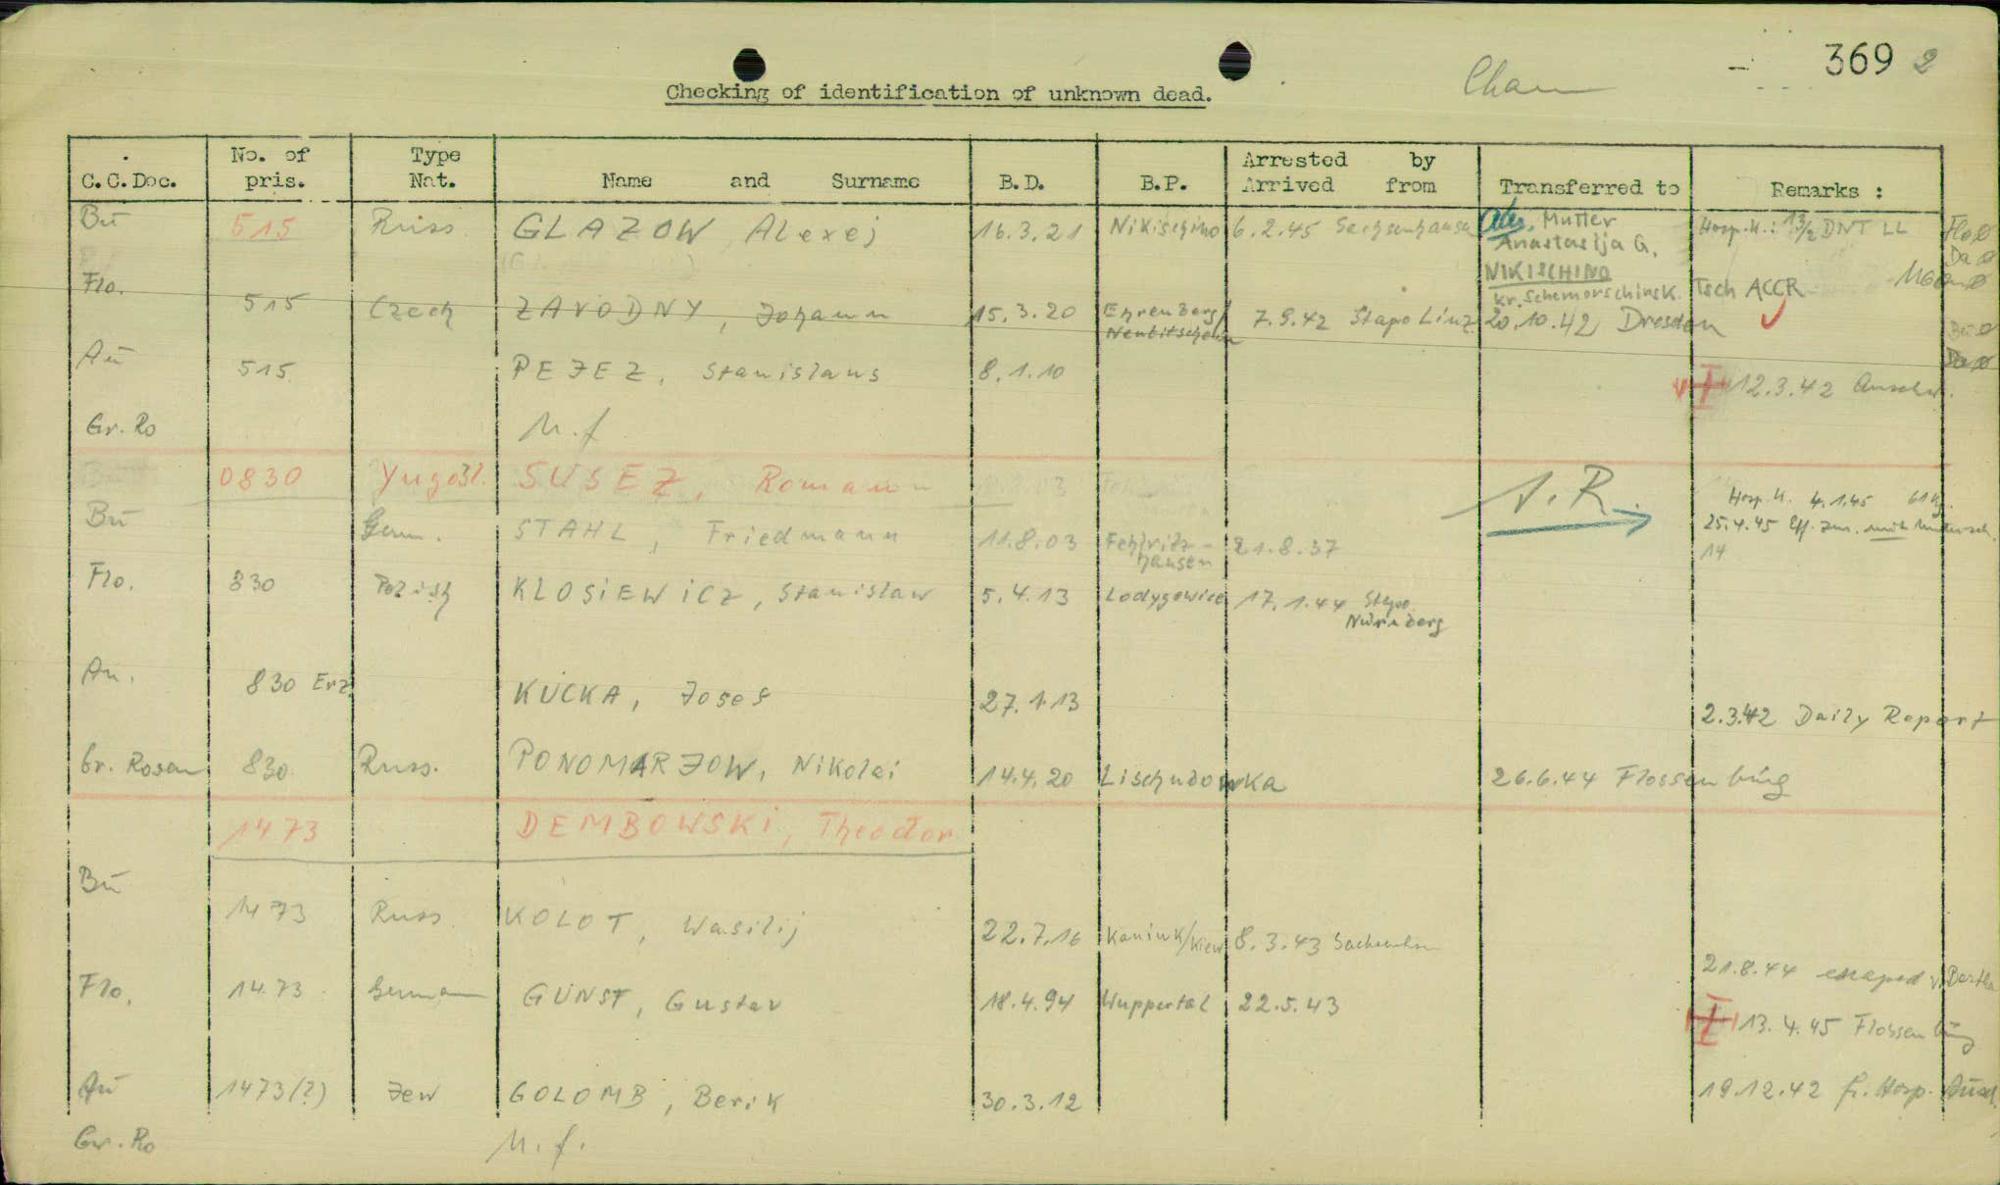 369 2
Cham
Checking of identification of unknown dead.
C.C.Doc. No. of pris. Type Nat. Name and Surname B.D. B.P. Arrested by Arrived from Transferred to Remarks :
Bu 515 Russ. GLAZOW, Alexej 16.3.21 Nikischino 6.2.45 Sachsenhausen Mutter Hosp.K.: 13/2 DNT LL Flo Ø
Anastasija G. Da Ø
NIKISCHINO
Flo. 515 Czech ZAVODNY, Johann 15.3.20 Ehrenberg/ 7.9.42 Stapo Linz kr. Schemorschinsk. Tsch ACCR
Neutitschein 20.10.42 Dresden Bu Ø
Au 515 PEJEZ, Stanislaus 8.1.10 12.3.42 Auschw. Da Ø
Gr. Ro N.f.
0830 Yugosl. SUSEZ, Romann
Bu Germ. STAHL, Friedmann 11.8.03 21.8.37 N.R. Hosp. K. 4.1.45
25.4.45 Eff.
14
Flo. 830 Polish KLOSIEWICZ, Stanislaw 5.4.13 Lodygowice 17.1.44 Stapo
Nürnberg
Au. 830 Erz. KUCKA, Josef 27.1.13 2.3.42 Daily Report
Gr. Rosen 830 Russ. PONOMARJOW, Nikolai 14.4.20 Lischudowka 26.6.44 Flossenbürg
1473 DEMBOWSKI, Theodor
Bu 1473 Russ. KOLOT, Wasilij 22.7.16 Kaniuk/Kiew 8.3.43 Sachsenhsn
21.8.44 escaped v. Bertha
Flo. 1473 German GÜNST, Gustav 18.4.94 Wuppertal 22.5.43 13.4.45 Flossenbürg
Au 1473(?) Jew GOLOMB, Berik 30.3.12 19.12.42 fr. Hosp. Ausch.
Gr. Ro N.f.